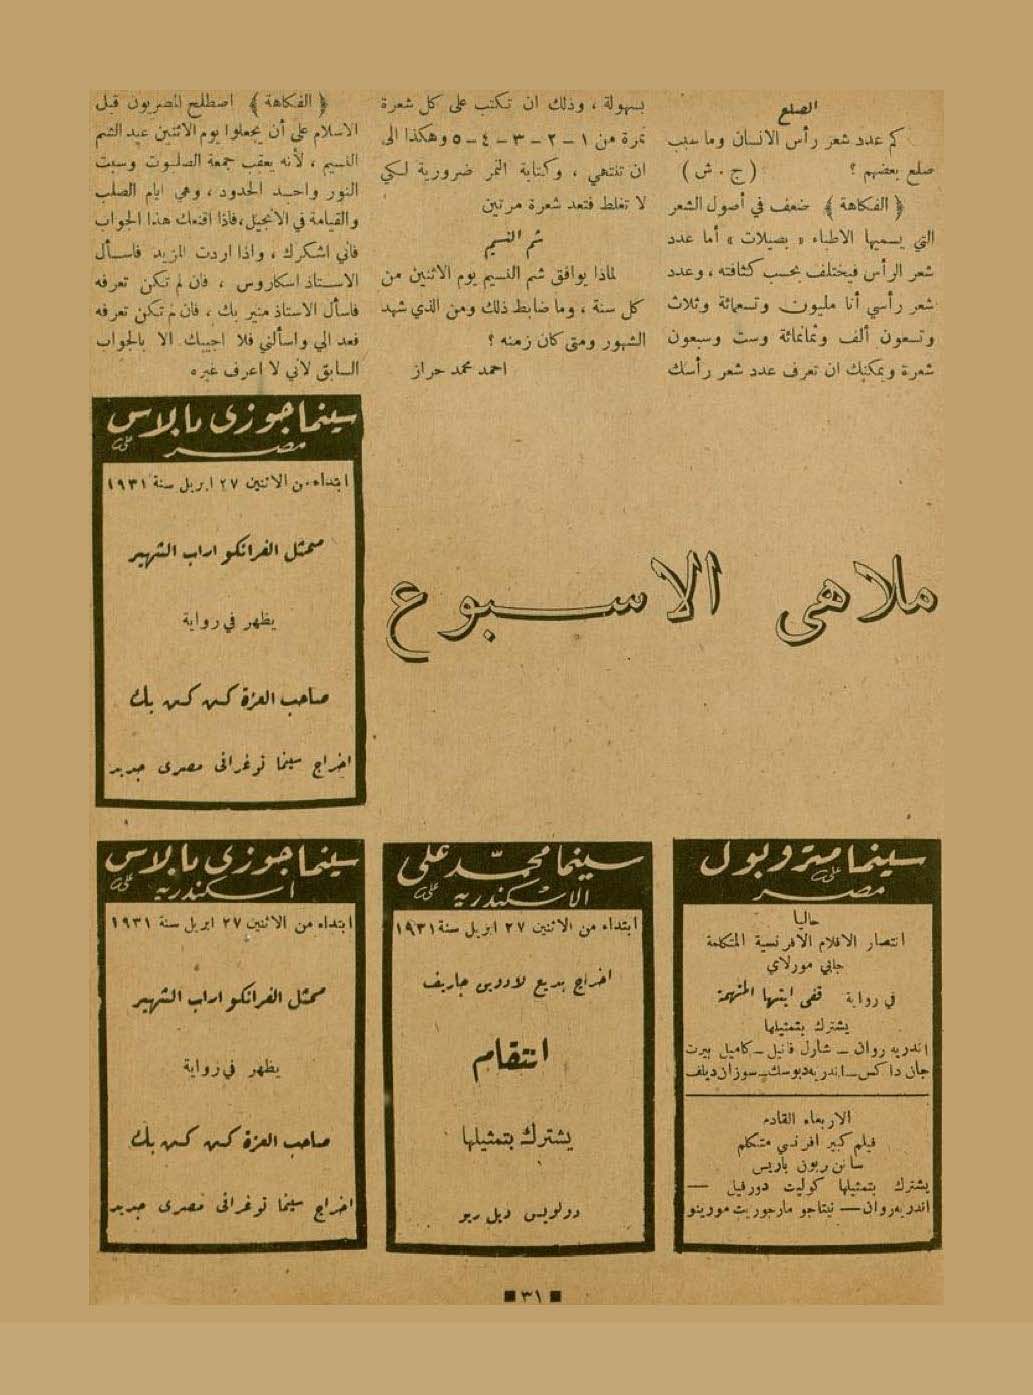 الصلع
كم عدد شعر رأس الانسان وما سبب
صلع بعضهم ؟ ( ج . ش )
﴿ الفكاهة ﴾ ضعف في أصول الشعر
التي يسميها الاطباء « بصيلات » أما عدد
شعر الرأس فيختلف بحسب كثافته ، وعدد
شعر رأسي أنا مليون وتسعمائة وثلاث
وتسعون ألف وثمانمائة وست وسبعون
شعرة ويمكنك ان تعرف عدد شعر رأسك
بسهولة ، وذلك ان تكتب على كل شعرة
نمرة من ١ – ٢ – ٣ – ٤ – ٥ وهكذا الى
ان تنتهي ، وكتابة النمر ضرورية لكي
لا تغلط فتعد شعرة مرتين
شم النسيم
لماذا يوافق شم النسيم يوم الاثنين من
كل سنة ، وما ضابط ذلك ومن الذي شهد
الشهور ومتى كان زمنه ؟
احمد محمد حراز
﴿ الفكاهة ﴾ اصطلح المصريون قبل
الاسلام على أن يجعلوا يوم الاثنين عيد الشم
النسيم ، لأنه يعقب جمعة الصلبوت وسبت
النور واحد الحدود ، وهي ايام الصلب
والقيامة في الانجيل ، فاذا اقنعك هذا الجواب
فاني اشكرك ، واذا اردت المزيد فاسأل
الاستاذ اسكاروس ، فان لم تكن تعرفه
فاسأل الاستاذ منير بك ، فان لم تكن تعرفه
فعد الي واسألني فلا اجيبك الا بالجواب
السابق لاني لا اعرف غيره
سينما جوزى بالاس
مصر
ابتداء من الاثنين ٢٧ ابريل سنة ١٩٣١
ممثل الفرانكو اراب الشهير
يظهر في رواية
صاحب العزة كس كس بك
اخراج سينما توغرافى مصرى جديد
ملاهى الاسبوع
سينما متروبول
مصر
حاليا
انتصار الافلام الافرنسية المتكلمة
جابي مورلاي
في رواية قفى ابنتها المتهمة
يشترك بتمثيلها
اندريه روان – شارل فانيل – كاميل بيرت
جان داكس – اندريه دبوسك – سوزان ديلف
الاربعاء القادم
فيلم كبير افرنسي متكلم
سانن ربون باريس
يشترك بتمثيلها كوليت دورفيل —
اندريه روان — نيتاجو مارجوريت مورينو
سينما محمد على
الاسكندرية
ابتداء من الاثنين ٢٧ ابريل سنة ١٩٣١
اخراج بديع لادوين جاريف
انتقام
يشترك بتمثيلها
دولوريس ديل ريو
سينما جوزى بالاس
اسكندرية
ابتداء من الاثنين ٢٧ ابريل سنة ١٩٣١
ممثل الفرانكو اراب الشهير
يظهر في رواية
صاحب العزة كس كس بك
اخراج سينما توغرافى مصرى جديد
٣١